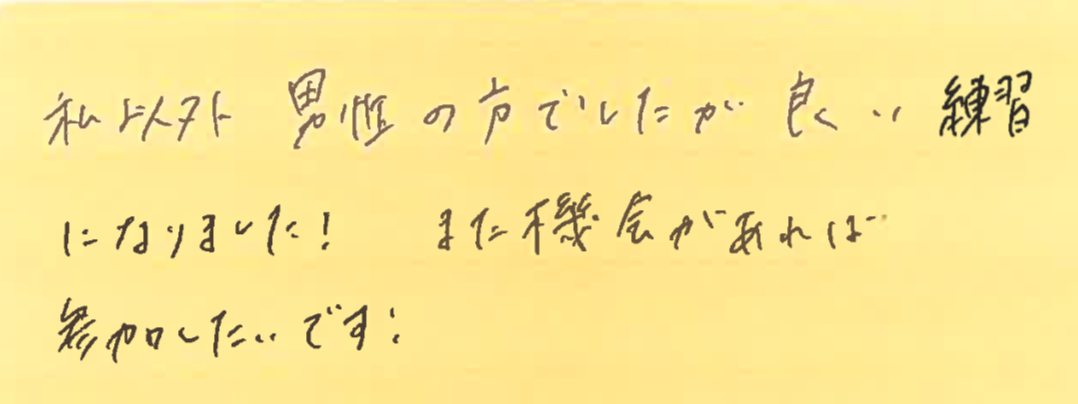 私以外 男性の方でしたが 良い練習
になりました! また機会があれば
参加したいです!